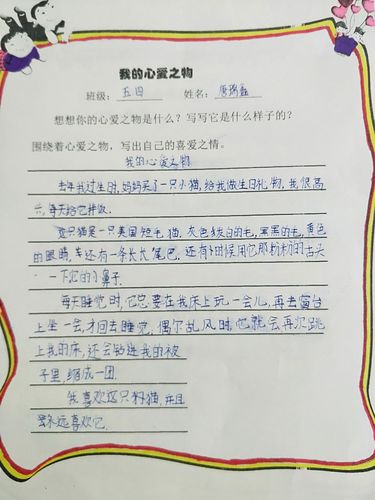 我的心爱之物
班级：五四 姓名：
想想你的心爱之物是什么？写写它是什么样子的？
围绕着心爱之物，写出自己的喜爱之情。
我的心爱之物
去年我过生日时，妈妈买了一只小猫，给我做生日礼物，我很高
兴，每天给它拌饭。
这只猫是一只美国短毛猫，灰色缺白的毛，黑黑的毛，黄色
的眼睛，还有一条长长尾巴，还有时候用它那粉粉的舌头
一下它的小鼻子。
每天睡觉时，它总要在我床上玩一会儿，再去窗台
上坐一会，才回去睡觉，偶尔乱风时，它就会再次跳
上我的床，还会钻进我的被
子里，缩成一团。
我喜欢这只猫，并且
永远喜欢它。